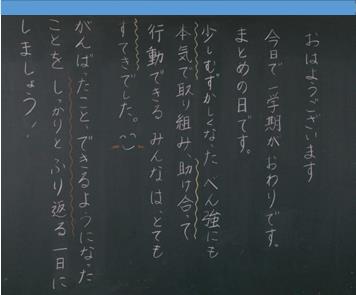 おはようございます
今日で一学期がおわりです。
まとめの日です。
少しむずかしくなった べん強にも
本気で取り組み、助け合って
行動できる みんなは、とても
すてきでした。
がんばったこと、できるようになった
ことを しっかりと ふり返る 一日に
しましょう！